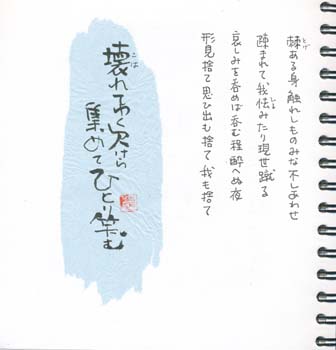 棘ある身 触れしものみな不しあわせ
疎まれて、我怯みたり現世蹴る
哀しみを呑めば呑む程酔へぬ夜
形見捨て思ひ出も捨て我も捨て
壊れゆく欠けら
集めてひとり笑む